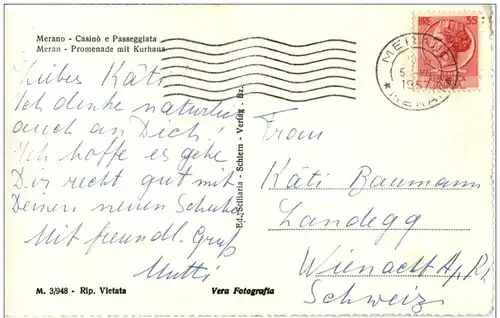 Merano - Casinò e Passeggiata
Meran - Promenade mit Kurhaus
LIRE 35
MERANO
5
1957
* MERANO
Liebes Käti!
Ich denke natürlich
auch an Dich!
Ich hoffe es gehe
Dir recht gut mit
Deinen neuen Schuhen
Mit freundl. Gruß
Mutti
Ed. Sciliaria - Schlern - Verlag, Bz.
Frau
Käti Baumann
Landegg
Wienacht Ap. Rh
Schweiz
M. 3/948 - Rip. Vietata
Vera Fotografia